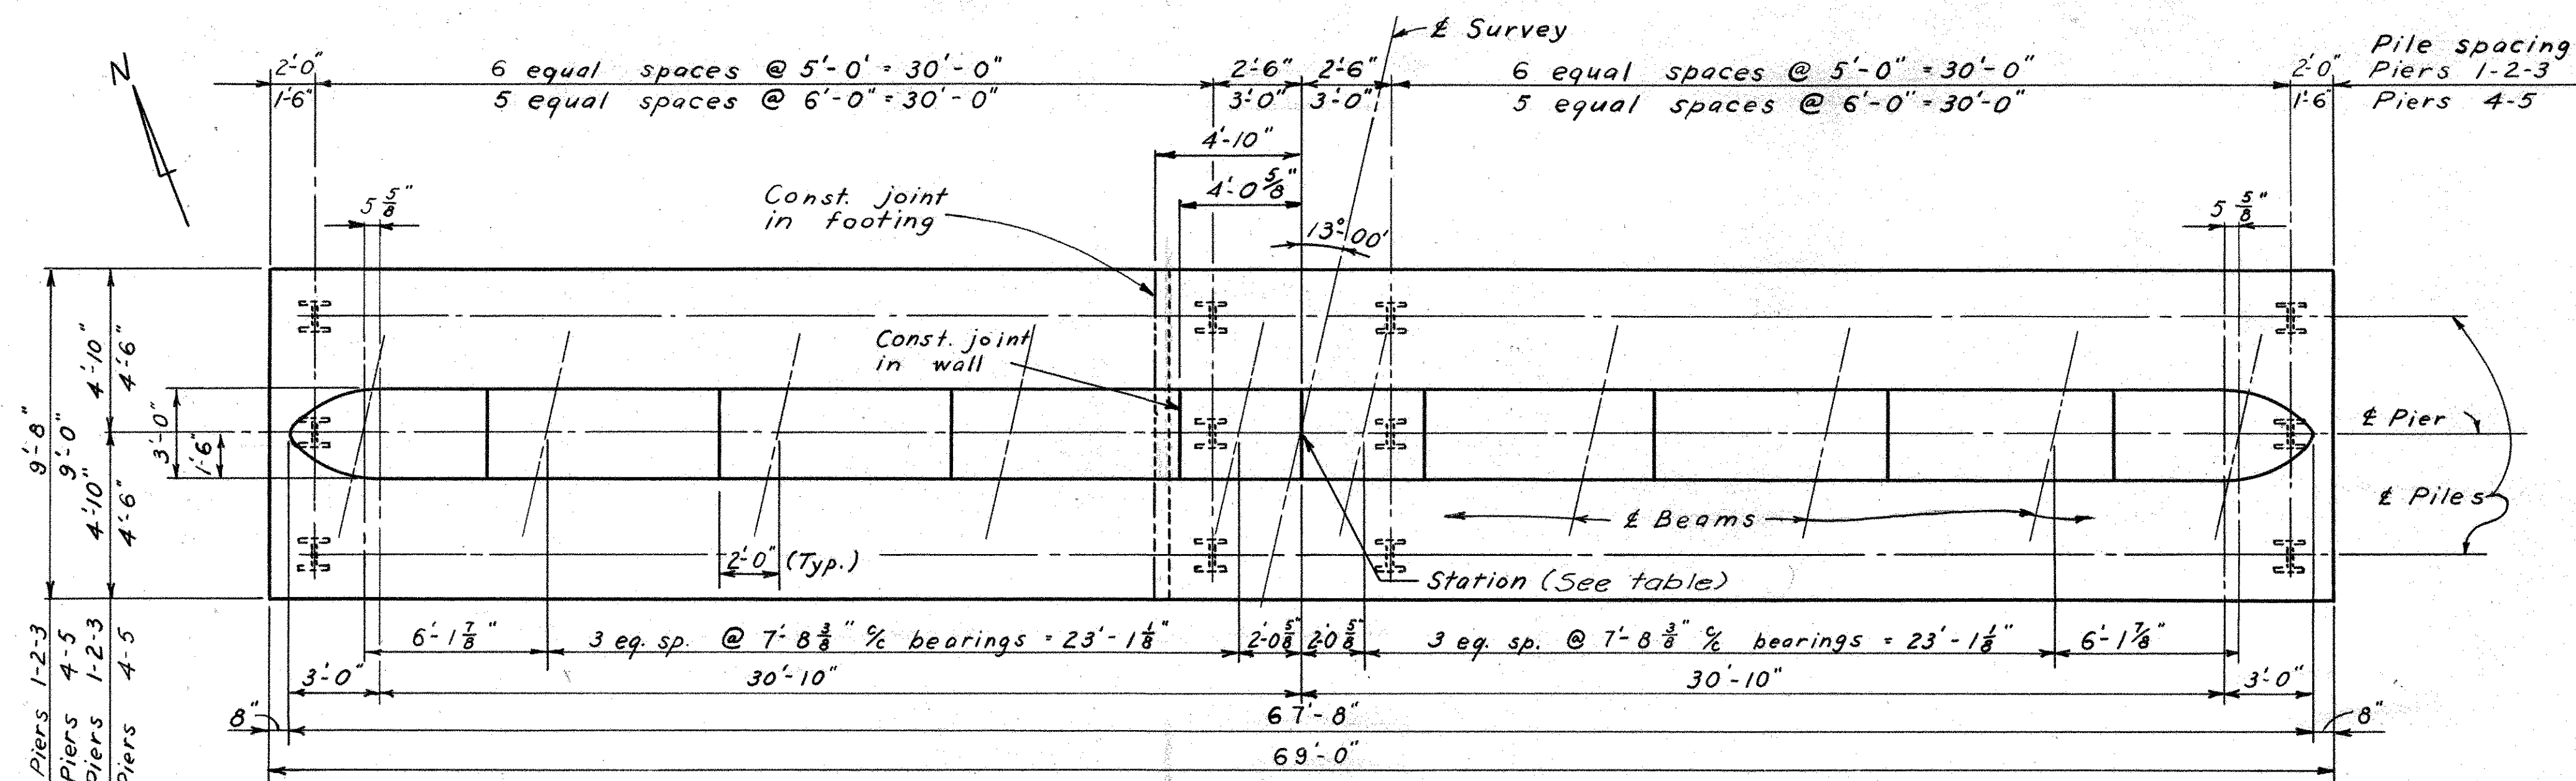 N
℄ Survey
Pile spacing
2'-0" 6 equal spaces @ 5'-0' = 30'-0" 2'-6" 2'-6" 6 equal spaces @ 5'-0" = 30'-0" 2'-0" Piers 1-2-3
1'-6" 5 equal spaces @ 6'-0" = 30'-0" 3'-0" 3'-0" 5 equal spaces @ 6'-0" = 30'-0" 1'-6" Piers 4-5
4'-10"
4'-0 5/8"
5 5/8"
Const. joint
in footing
13°-00'
5 5/8"
Const. joint
in wall
9'-8"
9'-0"
4'-10"
4'-6"
4'-10"
4'-6"
3'-0"
1'-6"
℄ Pier
℄ Piles
℄ Beams
2'-0" (Typ.)
Station (See table)
6'-1 7/8" 3 eq. sp. @ 7'-8 3/8" c/c bearings = 23'-1 1/8" 2'-0 5/8" 2'-0 5/8" 3 eq. sp. @ 7'-8 3/8" c/c bearings = 23'-1 1/8" 6'-1 7/8"
3'-0" 30'-10" 30'-10" 3'-0"
8" 67'-8" 8"
69'-0"
Piers 1-2-3
Piers 4-5
Piers 1-2-3
Piers 4-5